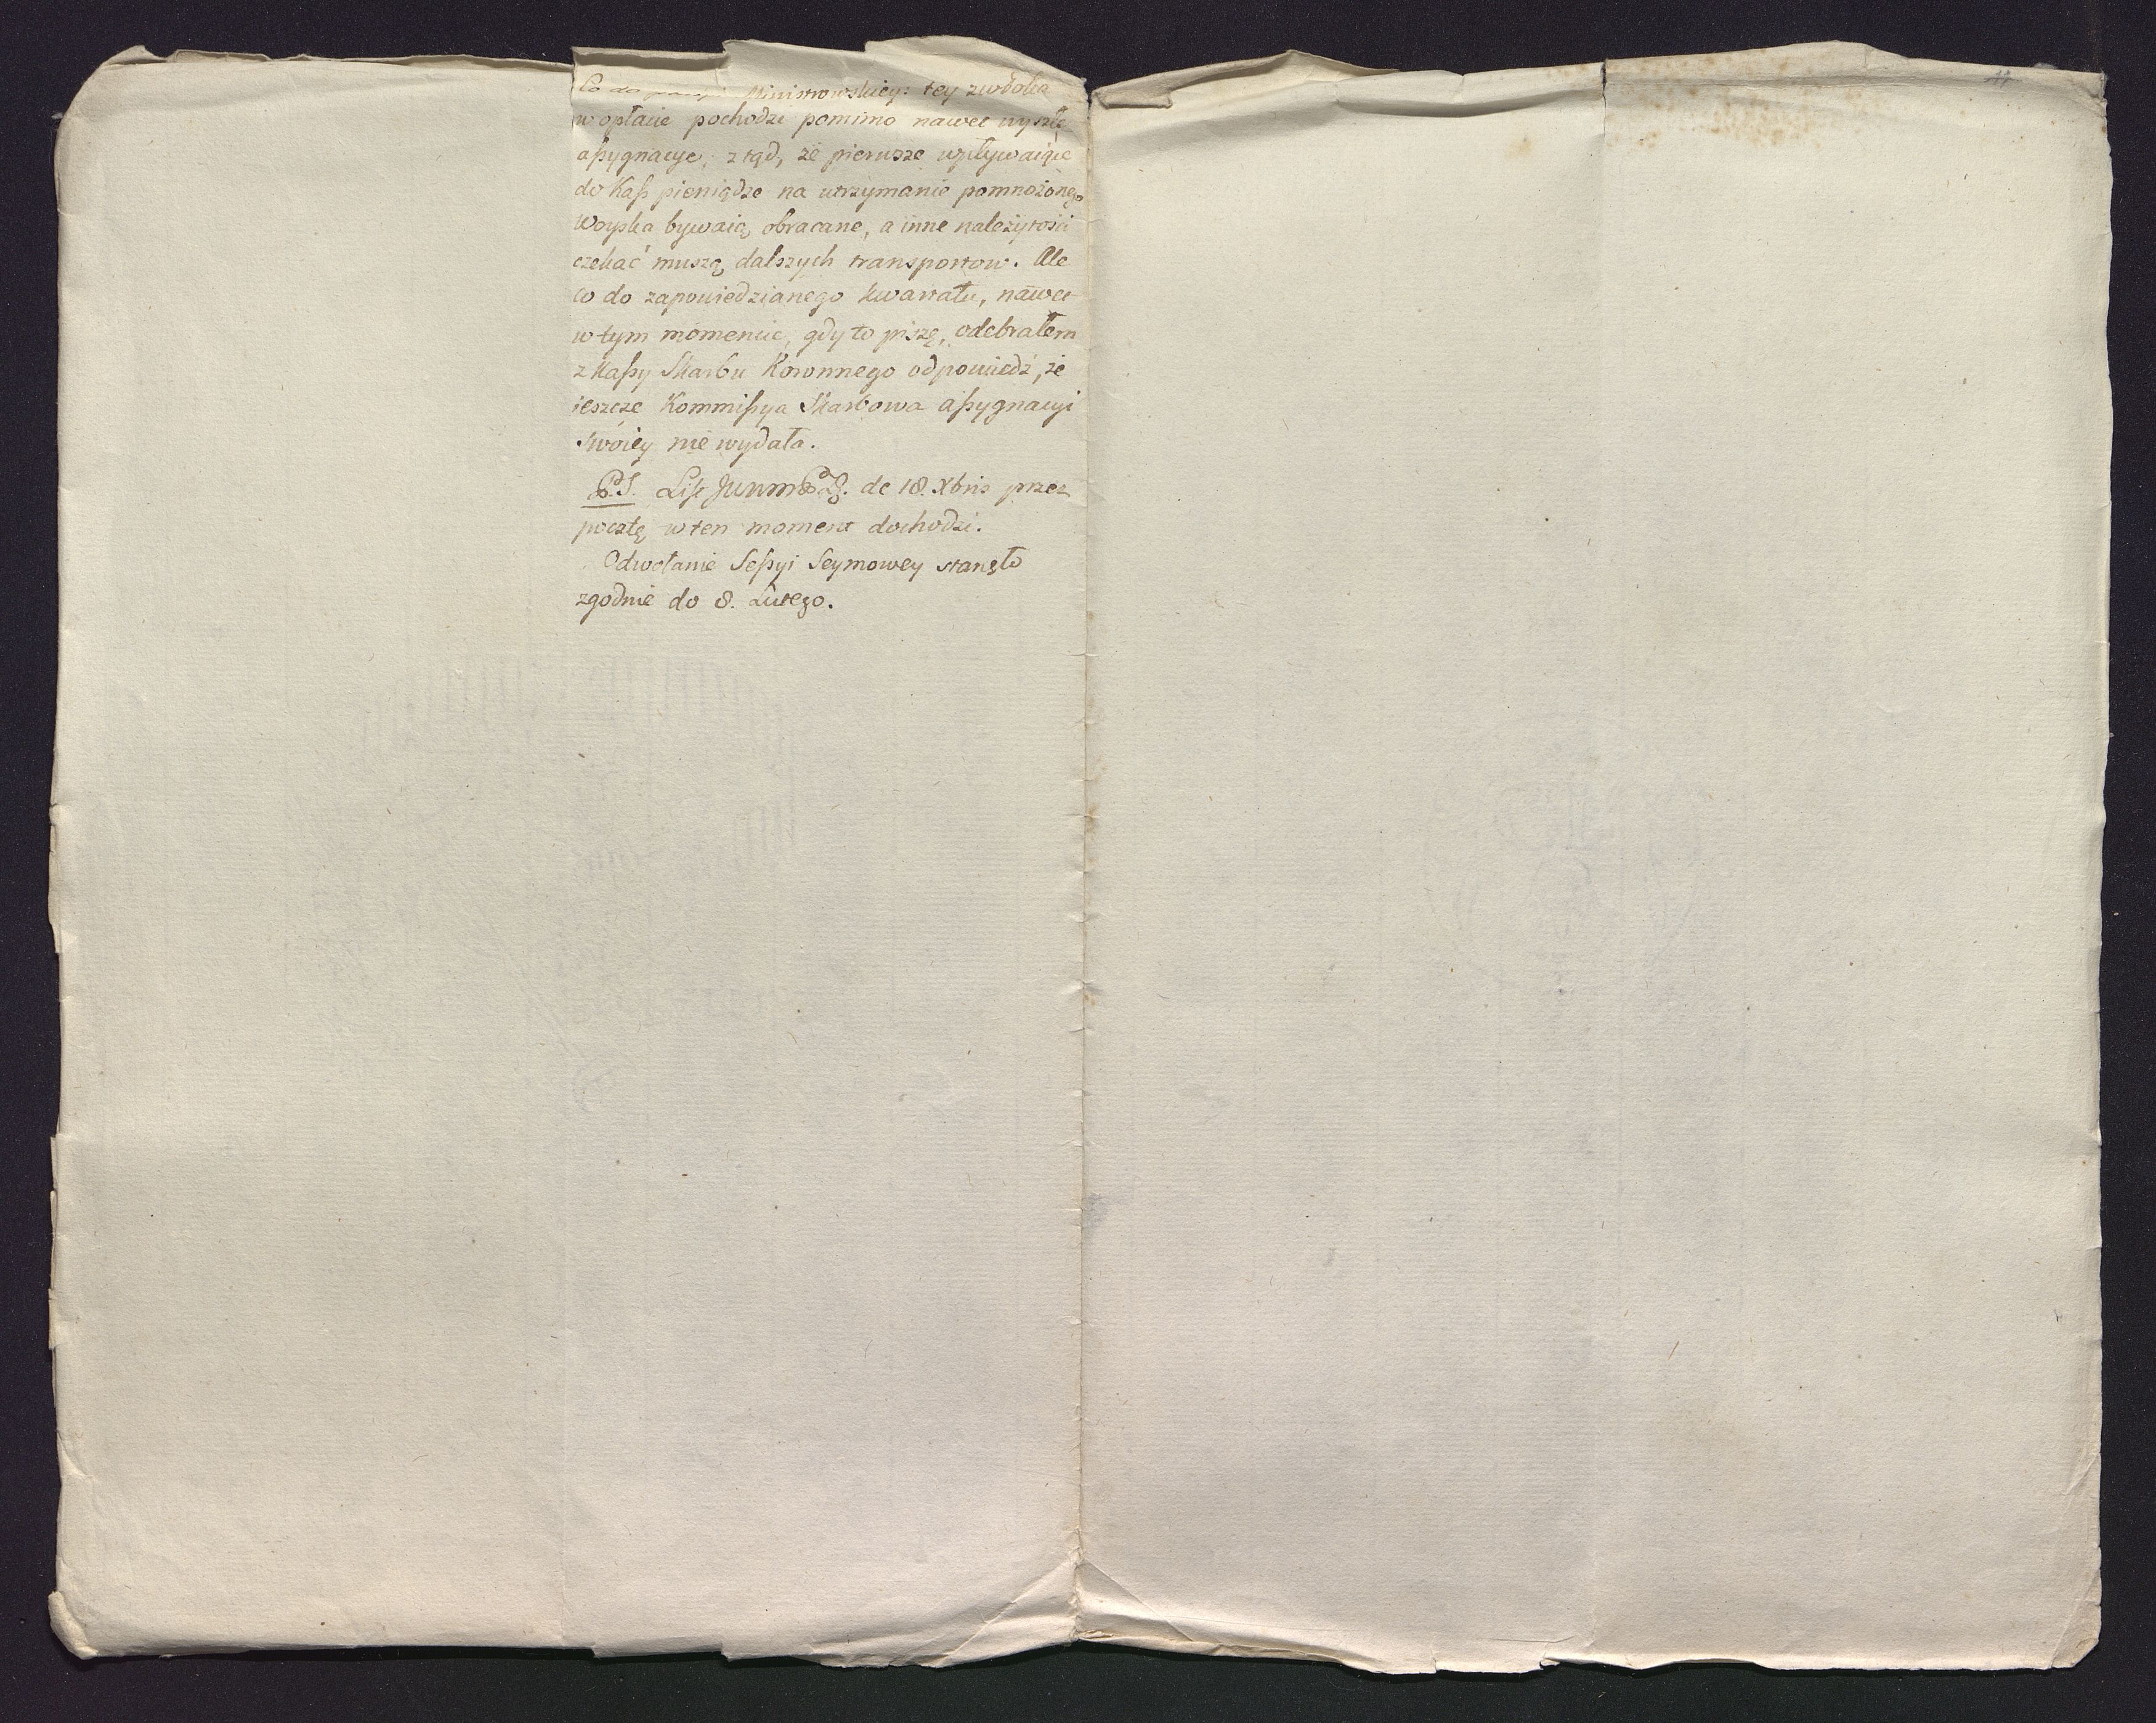 Co do pensyi Ministrowskiey: tey zwłoka
w opłacie pochodzi pomimo nawet wyszłe
aßygnacye, ztąd, że pierwsze wpływaiące
do Kaß pieniądze na utrzymanie pomnożonego
Woyska bywaią obracane, a inne należytości
czekać muszą dalszych transportow. Ale
co do zapowiedzianego kwartału, nawet
w tym momencie, gdy to piszę, odebrałem
z Kaßy Skarbu Koronnego odpowiedź, że
ieszcze Kommißya Skarbowa aßygnacyi
swóiey nie wydała.
P.S. List de 18. Xbris przez
pocztę w ten moment dochodzi.
Odwołanie Seßyi Seymowey stanęło
zgodnie do 8. Lutego.